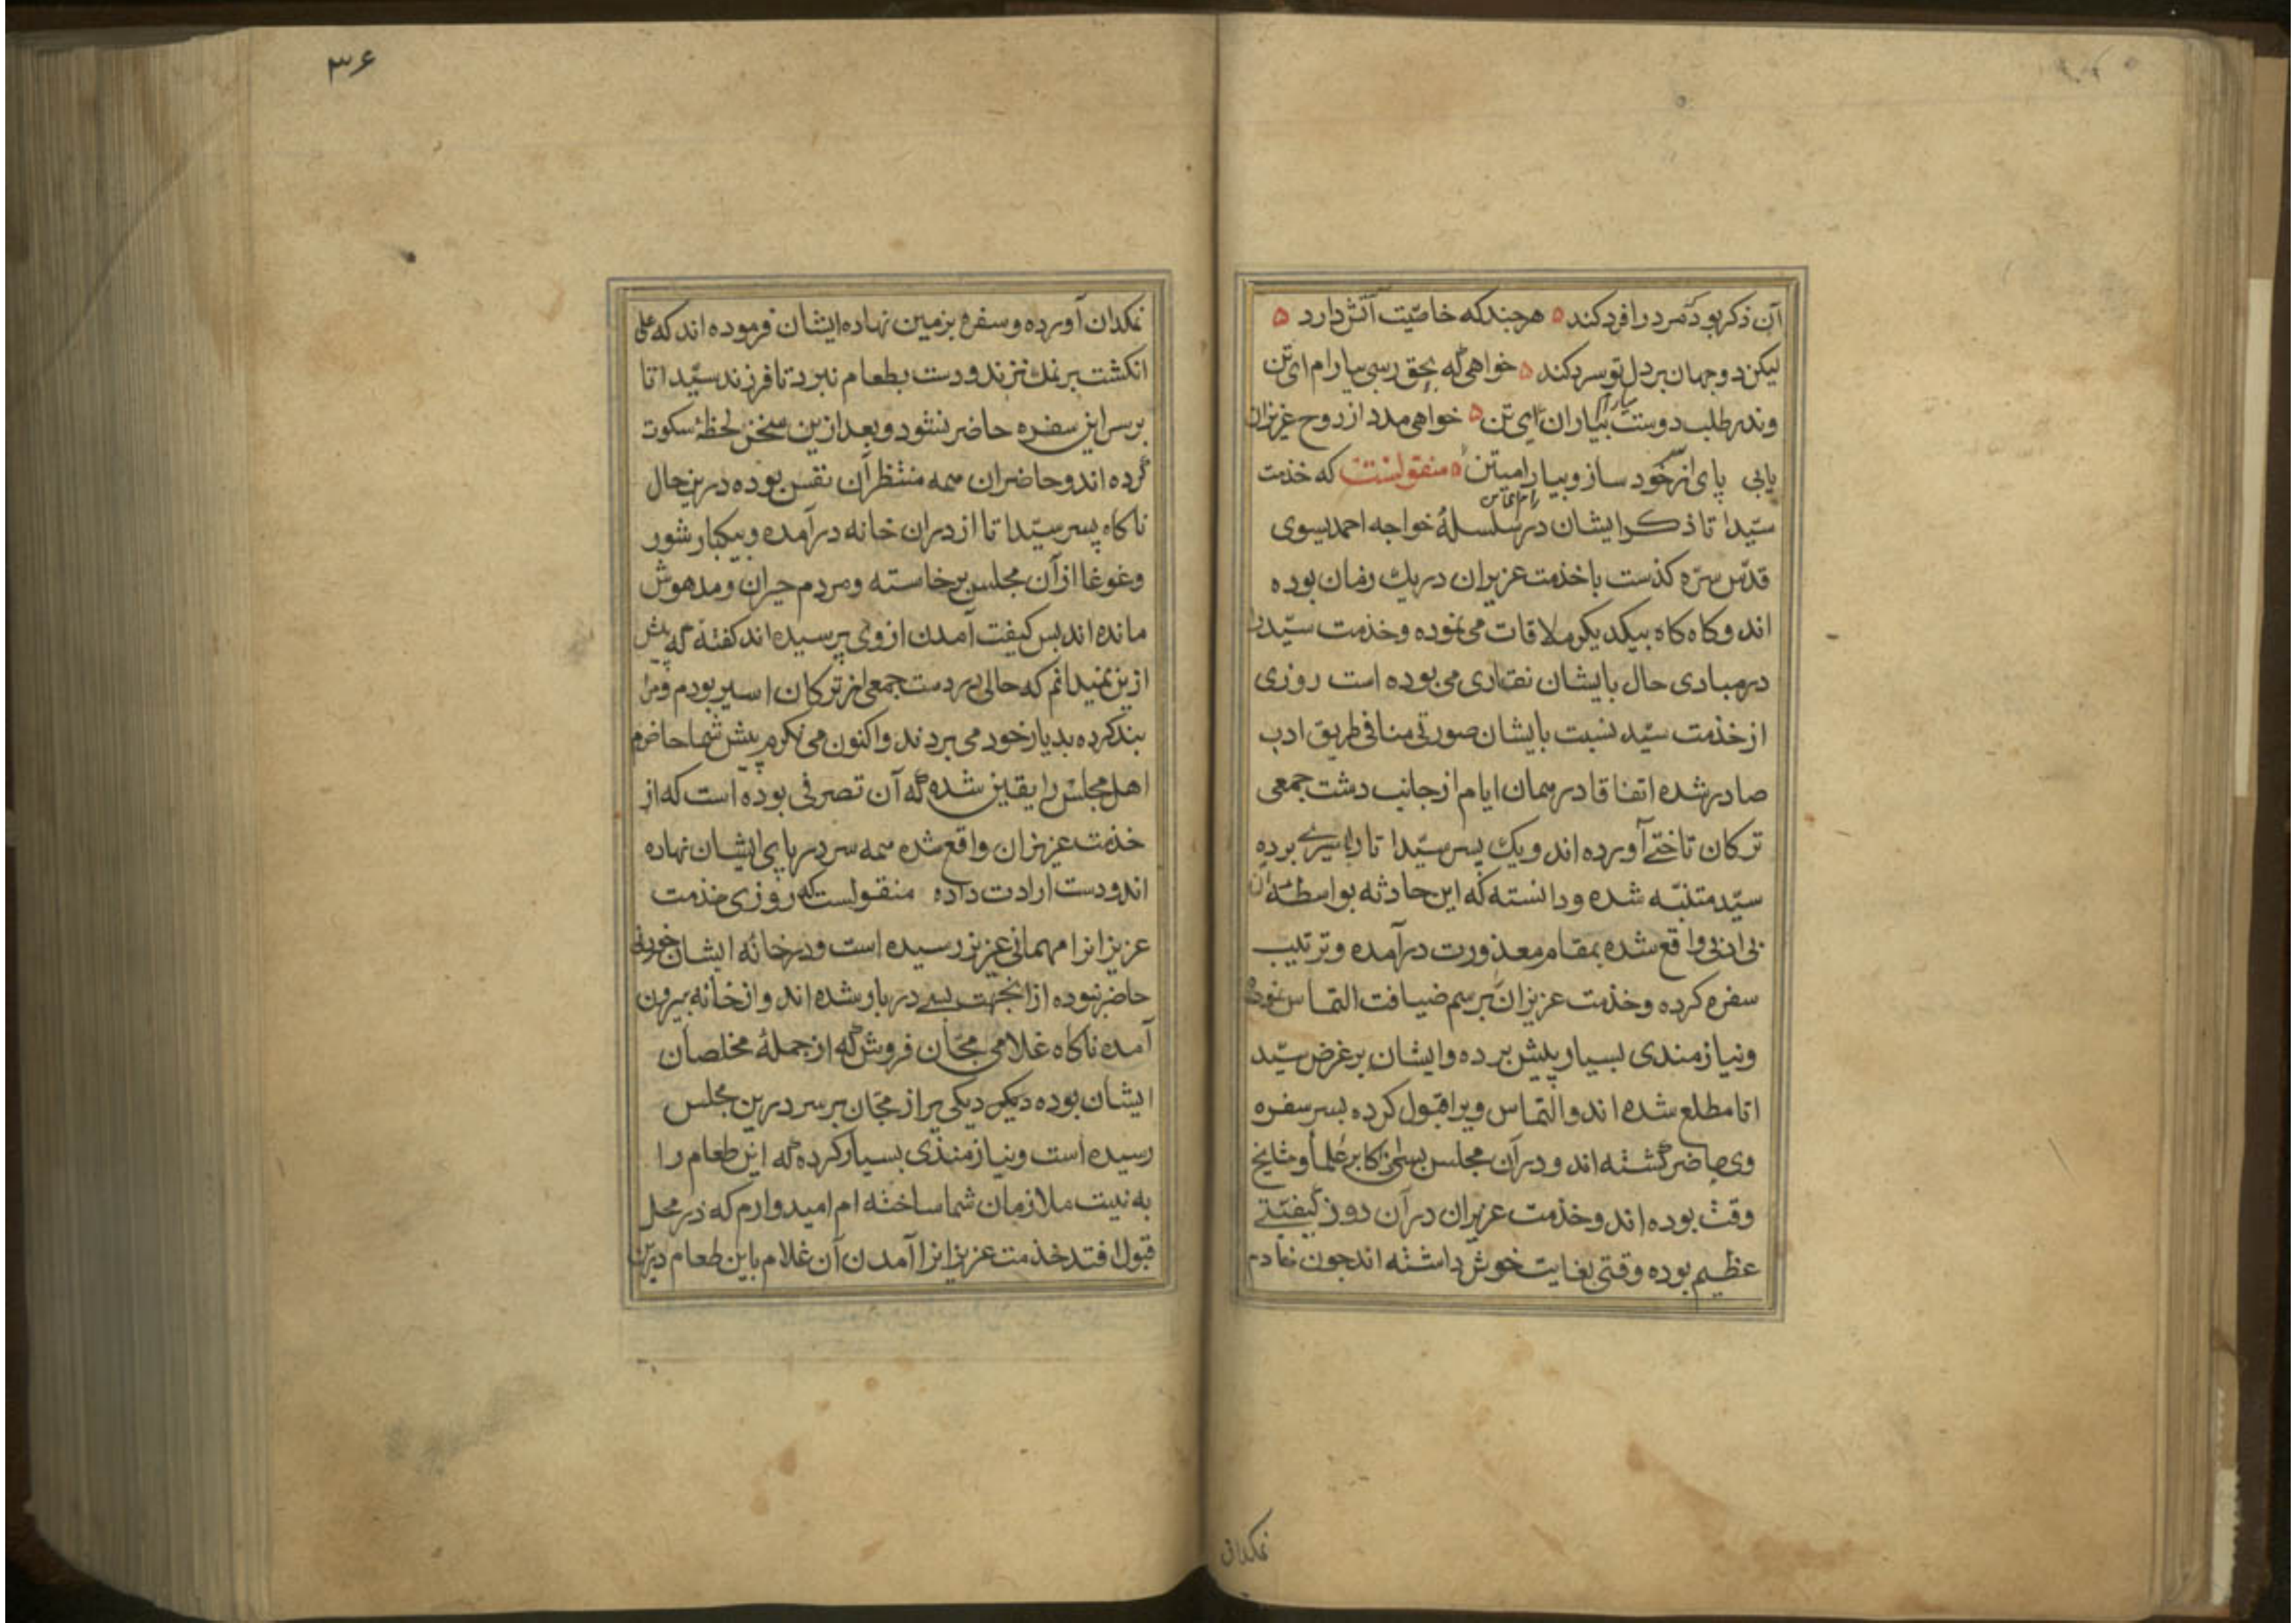 آن ذکر بود که مرد را فرد کند ۵ هرچند که خاصیّت آتش دارد ۵
لیکن دو جهان بر دل تو سرد کند ۵ خواهی که بحق رسی بیارام ای تن
وندر طلب دوست بیاران ای تن ۵ خواهی مدد از روح عزیزان
بیارام
یابی پای از سر خود ساز و بیا رامیتن ۵ منقولست که خذمت
رام ای تن
سیّد اتا ذکر ایشان در سلسلهٔ خواجه احمد یسوی
قدّس سرّه کذست با خذمت عزیزان در یک زمان بوده
اند و کاه کاه بیکدیکر ملاقات می نموده و خذمت سیّد را
در مبادی حال بایشان نقاری می بوده است روزی
از خذمت سیّد نسبت بایشان صورتی منافی طریق ادب
صادر شده اتفاقا در همان ایام از جانب دشت جمعی
ترکان تاختی آورده اند و یک پسر سیّد اتا را باسیری برده
سیّد متنبّه شده و دانسته که این حادثه بواسطهٔ آن
بی ادبی واقع شده بمقام معذورت در آمده و ترتیب
سفره کرده و خذمت عزیزان برسم ضیافت التماس نموده
و نیازمندی بسیار پیش برده و ایشان بر غرض سیّد
اتا مطلع شده اند و التماس ویرا قبول کرده بسر سفره
وی حاضر کشته اند و در آن مجلس بسی اکابر علما و مشایخ
وقت بوده اند و خذمت عزیزان در آن روز کیفیّتی
عظیم بوده وقتی بغایت خوش داشته اند چون خادم
نمکدان
۳۶
نمکدان آورده و سفره بزمین نهاده ایشان فرموده اند که علی
انکشت بر نمک نزند و دست بطعام نبرد تا فرزند سیّد اتا
بر سر این سفره حاضر نشود و بعد ازین سخن لحظهٔ سکوت
کرده اند و حاضران همه منتظر آن نفس بوده درین حال
ناکاه پسر سیّد اتا از در ان خانه در آمده و بیکبار شور
و غوغا از آن مجلس برخاسته و مردم حیران و مدهوش
مانده اند بس کیفت آمدن از وی پرسیده اند کفته که پیش
ازین نمیدانم که حالی در دست جمعی از ترکان اسیر بودم و مرا
بند کرده بدیار خود می بردند و اکنون می نکرم پیش شما حاضرم
اهل مجلس را یقین شده که آن تصرفی بوده است که از
خذمت عزیزان واقع شده همه سر در پای ایشان نهاده
اند و دست ارادت داده منقولست که روزی خذمت
عزیزانرا مهمانی عزیز رسیده است و در خانه ایشان خوردنی
حاضر نبوده ازانجهت بسی در باو شده اند و از خانه بیرون
آمده ناکاه غلامی مجّان فروش که از جملهٔ مخلصان
ایشان بوده دیکر دیکی پر از مجّان بر سر درین مجلس
رسیده است و نیازمندی بسیار کرده که این طعام را
به نیت ملازمان شما ساخته ام امیدوارم که در محل
قبول افتد خذمت عزیزانرا آمدن آن غلام باین طعام درین